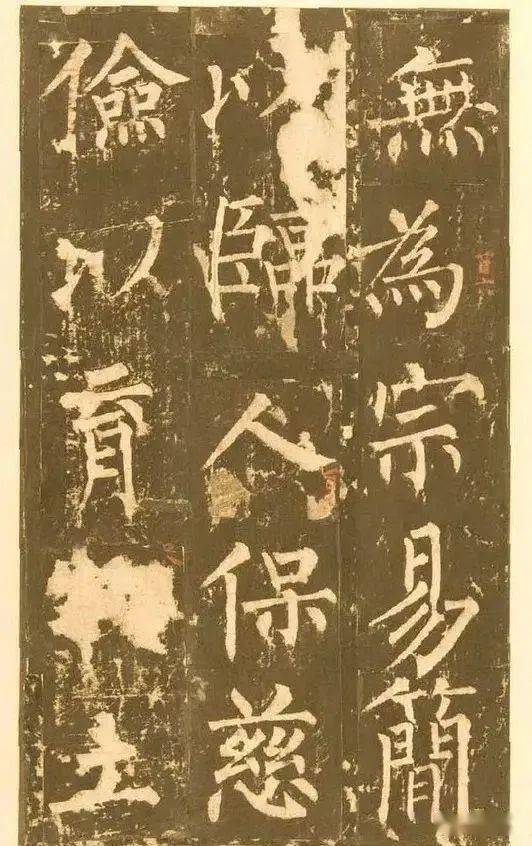 無為宗易簡
以臨人保慈
儉以育土